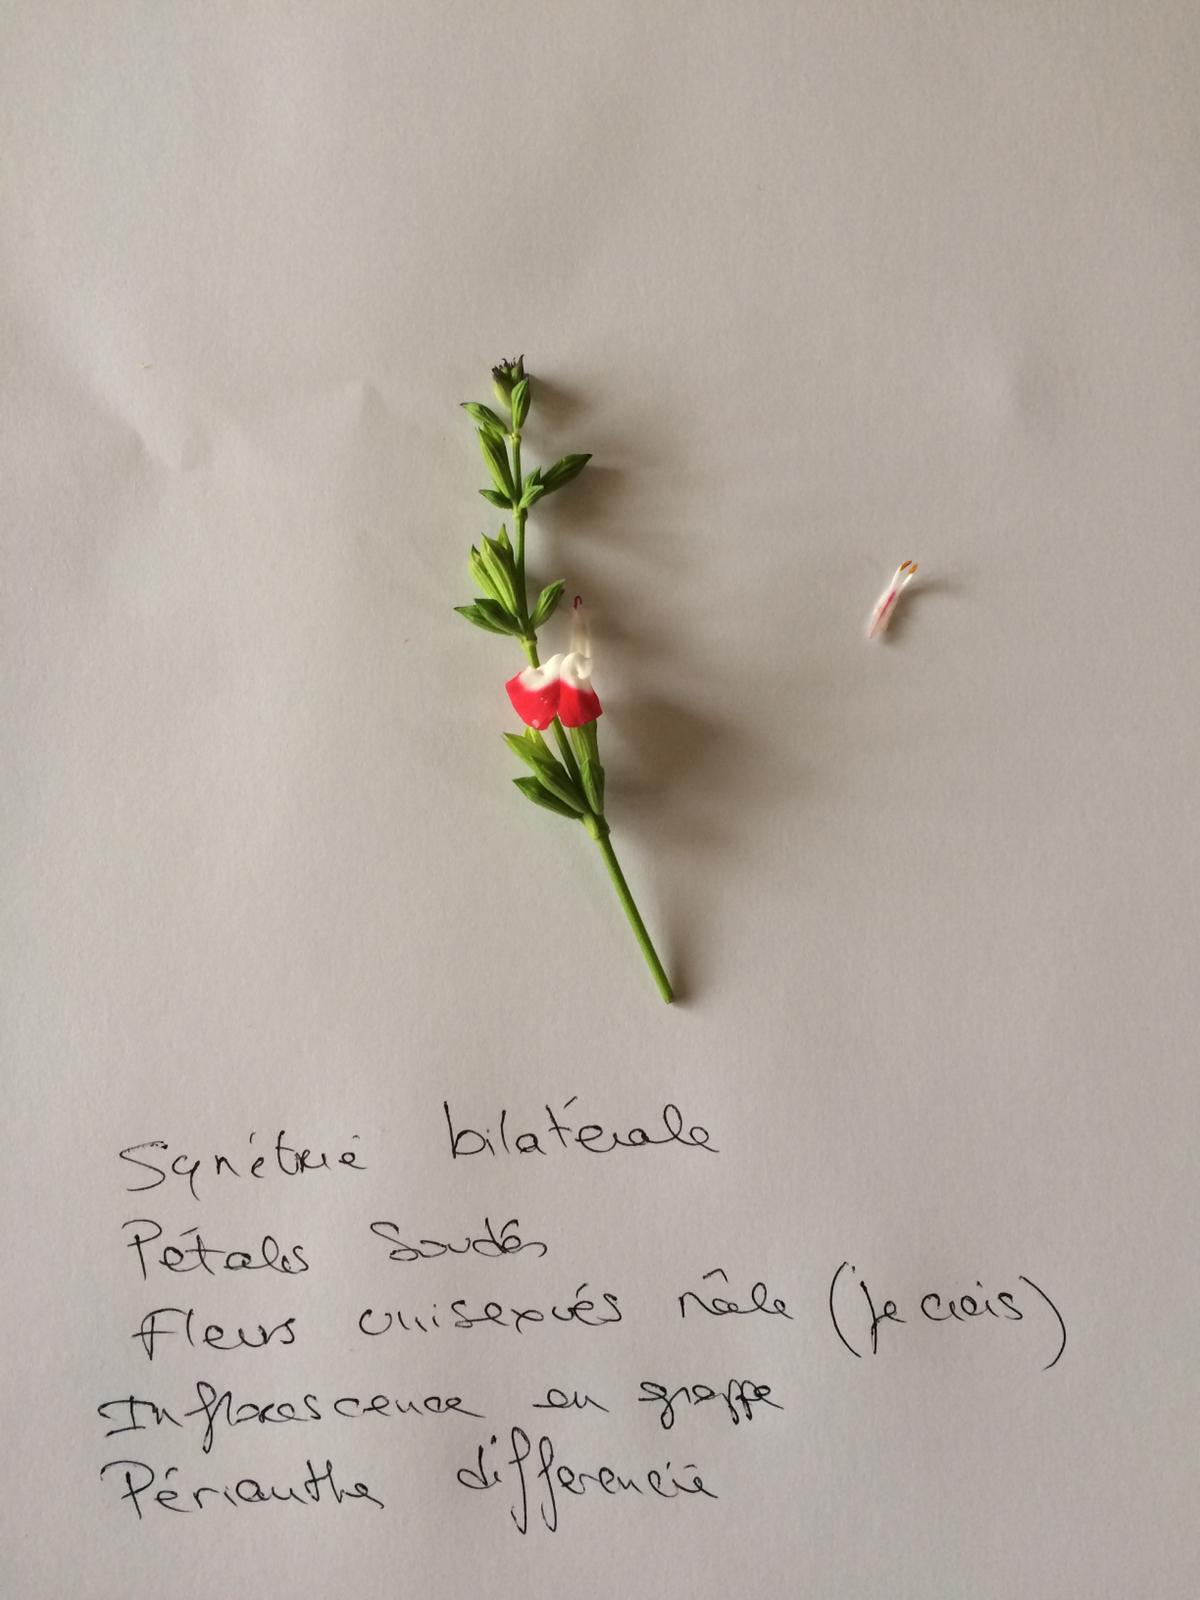 Symétrie bilatérale
Pétales soudés
Fleurs unisexués mâle (je crois)
Inflorescence en grappe
Périanthe différencié